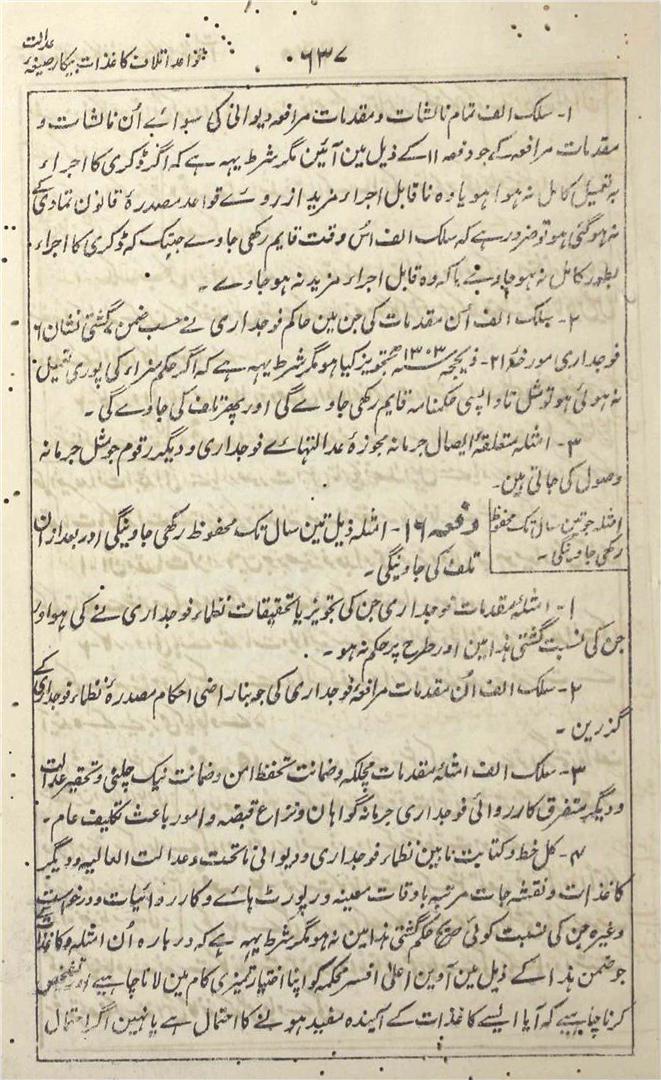 ۶۳۷
قواعد اتلاف کاغذات بیکار صیغہ عدالت
۱- سلک الف تمام نالشات و مقدمات مرافعہ دیوانی کی سوائے اُن نالشات و
مقدمات مرافعہ کے جو دفعہ ۱۱ کے ذیل مین آئین مگر شرط یہہ ہے کہ اگر ڈکری کا اجراء
بہ تعمیل کامل نہ ہوا ہو یا وہ نا قابل اجراء مزید از روے قواعد مصدرۂ قانون تمادی کے
نہ ہو گئی ہو تو ضرور ہے کہ سلک الف اُس وقت قایم رکھی جاوے جبتک کہ ڈکری کا اجراء
بطور کامل نہ ہو جاوے یا کہ وہ قابل اجراء مزید نہ ہو جاوے ۔
۲- سلک الف اُن مقدمات کی جن مین حاکم فوجداری نے حسب ضمن گشتی نشان ۶
فوجداری مورخہ ۲۱- ذیحجہ سنہ ۱۳۰۳ ھ تجویز کیا ہو مگر شرط یہہ ہے کہ اگر حکم سزاء کی پوری تعمیل
نہ ہوئی ہو تو مثل تا واپسی حکمنامہ قایم رکھی جاوے گی اور پھر تلف کی جاوے گی ۔
۳- امثلہ متعلقۂ ایصال جرمانہ مجوزۂ عدالتہائے فوجداری و دیگر رقوم جو مثل جرمانہ
وصول کی جاتی ہین۔
امثلہ جو تین سال تک محفوظ
رکھی جاوینگی ۔
دفعہ ۱۶- امثلہ ذیل تین سال تک محفوظ رکھی جاوینگی اور بعد ازان
تلف کی جاوینگی ۔
۱- امثلۂ مقدمات فوجداری جن کی تجویز یا تحقیقات نظماء فوجداری نے کی ہو اور
جن کی نسبت گشتی ہذا مین اور طرح پر حکم نہ ہو ۔
۲- سلک الف اُن مقدمات مرافعۂ فوجداری کی جو بناراضی احکام مصدرۂ نظماء فوجداری کے
گزرین ۔
۳- سلک الف امثلۂ مقدمات مچلکہ و ضمانت تحفظ امن و ضمانت نیک چلنی و تحقیر عدالت
و دیگر متفرق کارروائی فوجداری جرمانہ گواہان و نزاع قبضہ و امور باعث تکلیف عام ۔
۴- کل خط و کتابت مابین نظماء فوجداری و دیوانی ماتحت و عدالت العالیہ و دیگر
کاغذات و نقشہ جات مرتبہ باوقات معینہ و رپورٹ ہائے و کارروائیات و درخواست
وغیرہ جن کی نسبت کوئی صریح حکم گشتی ہذا مین نہ ہو مگر شرط یہہ ہے کہ دربارہ اُن امثلہ و کاغذات کے
جو ضمن ہذا کے ذیل مین آوین اعلیٰ افسر محکمہ کو اپنا اختیار تمیزی کام مین لانا چاہیے اور تشخیص
کرنا چاہیے کہ آیا ایسے کاغذات کے آیندہ مفید ہونے کا احتمال ہے یا نہین اگر احتمال